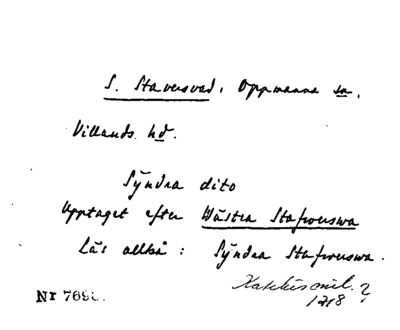 S. Staversvad, Oppmanna sn,
Villands hd.
Sÿndra dito
Upptaget efter Wästra Stafwerswa
Läs alltså: Sÿndra Stafwerswa.
1718
Nr 769